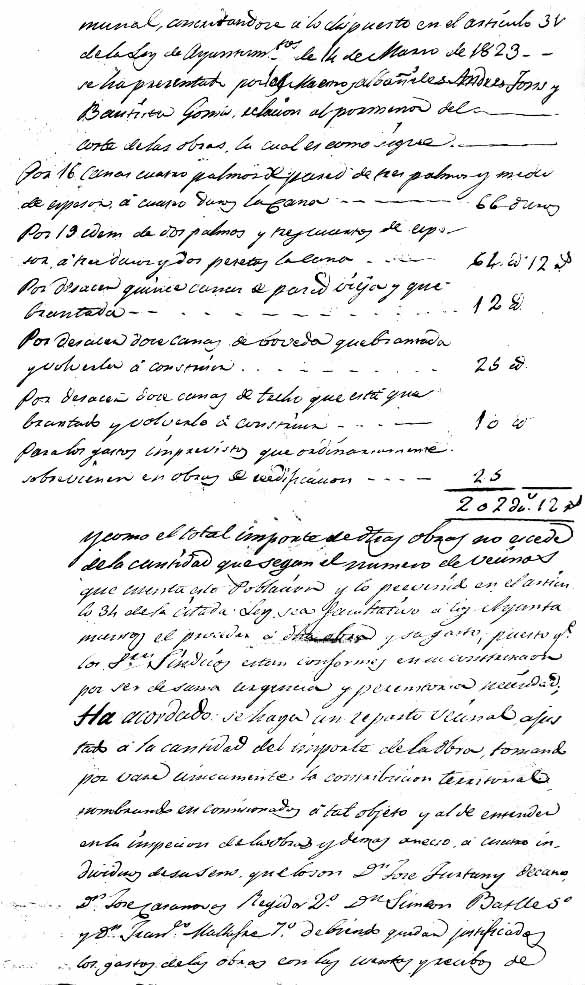 munal, concretandose á lo dispuesto en el artículo 34
de la Ley de Ayuntam.tos de 14 de Marzo de 1823 –
se ha presentado por los Maestros albañiles Andres Tous y
Bautista Gomis, relacion al pormenor del
coste de las obras, la cual es como sigue.
Por 16 Canas cuatro palmos de pared de tres palmos y medio
de espesor, á cuatro duros la cana 66 duros
Por 19 idem de dos palmos y tres cuartos de espe-
sor, á tres duros y dos pesetas la cana 64 d 12
Por desacer quince canas de pared vieja y que
brantada 12 d
Por desacer doce canas de boveda quebrantada
y volverla á construir 25 d
Por desacer doce canas de techo que está que
brantado y volverlo á construir 10 d
Para los gastos imprevistos que ordinariamente
sobrevienen en obras de redificacion 25
202 du.s 12
y como el total importe de dhas obras no escede
de la cantidad que segun el numero de vecinos
que cuenta esta Poblacion y lo prevenido en el artícu
lo 34 de la citada Ley, sea facultativo á los Ayunta
mientos el proceder á y su gasto, puesto q.e
los S.res Síndicos estan conformes en su construccion
por ser de suma urgencia y perentoria necesidad,
Ha acordado: se haga un reparto vecinal ajus
tado á la cantidad del importe de la obra, tomando
por vase unicamente la contribucion territorial,
nombrando en comisionados á tal objeto y al de entender
en la inspecion de las obras y demas anecso, á cuatro in-
dividuos de su seno, que lo son D.n Jose Fortuny decano,
D.n Jose Casanovas Regidor 2.º D.n Simon Batlle 5º
y D.n Fran.co Mallafre 7.º debiendo quedar justificados
los gastos de las obras con las cuentas y recibos de